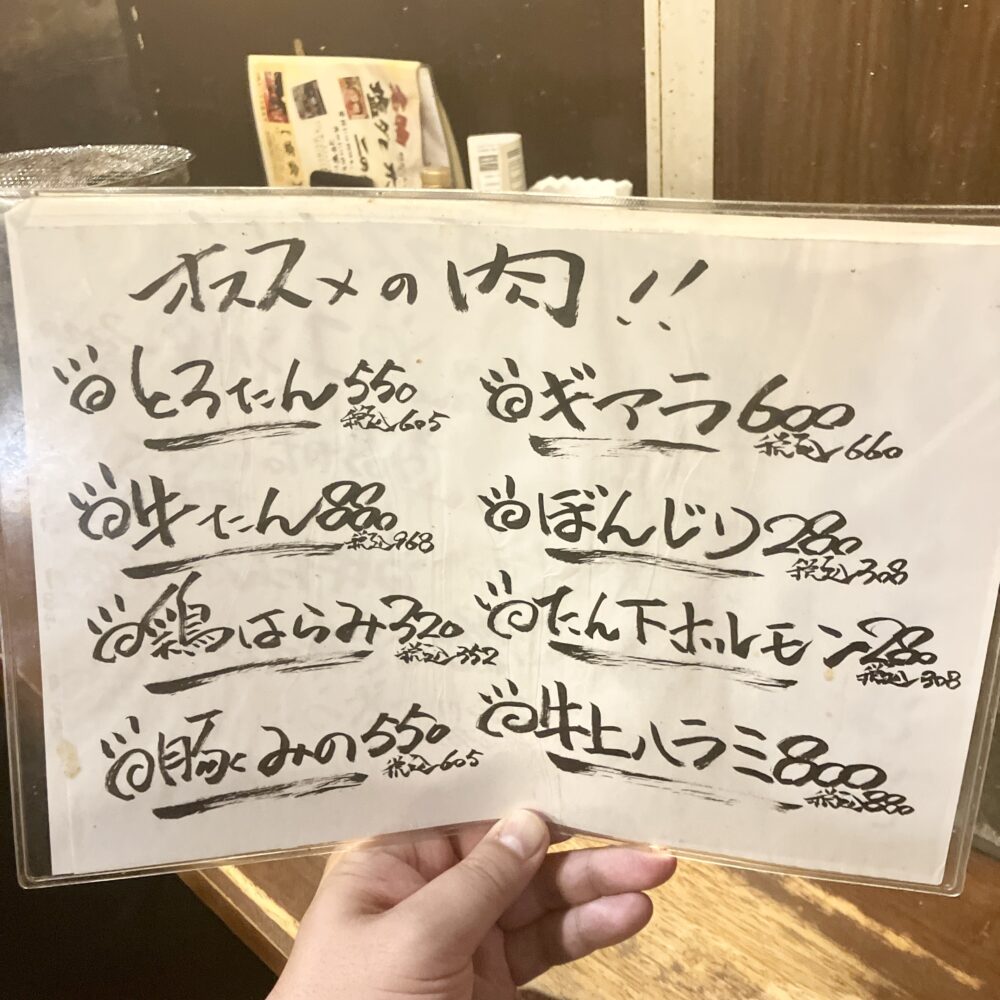 オススメの肉!!
とろたん 550
税込605
牛たん 880
税込968
鶏はらみ 320
税込352
豚みの 550
税込605
ギアラ 600
税込660
ぼんじり 280
税込308
たん下ホルモン 280
税込308
牛上ハラミ 800
税込880